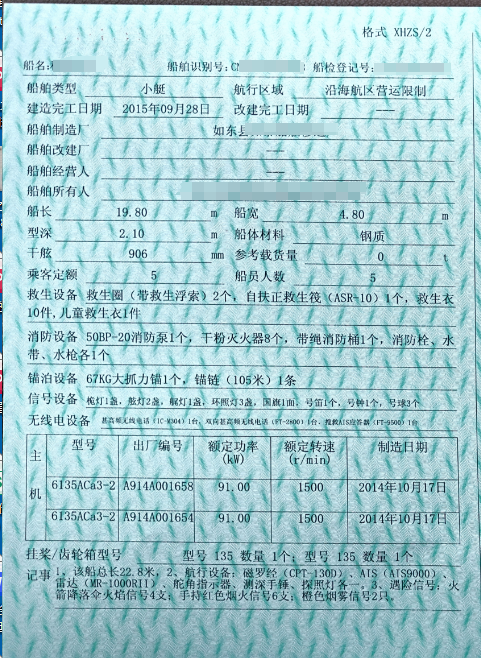 格式 XHZS/2
船名: 船舶识别号:CN 船检登记号:
船舶类型 小艇 航行区域 沿海航区营运限制
建造完工日期 2015年09月28日 改建完工日期 ——
船舶制造厂 如东县
船舶改建厂
船舶经营人 ——
船舶所有人
船长 19.80 m 船宽 4.80 m
型深 2.10 m 船体材料 钢质
干舷 906 mm 参考载货量 0 t
乘客定额 5 船员人数 5
救生设备 救生圈（带救生浮索）2个，自扶正救生筏（ASR-10）1个，救生衣
10件,儿童救生衣1件
消防设备 50BP-20消防泵1个，干粉灭火器8个，带绳消防桶1个，消防栓、水
带、水枪各1个
锚泊设备 67KG大抓力锚1个，锚链（105米）1条
信号设备 桅灯1盏，舷灯2盏，艉灯1盏，环照灯3盏，国旗1面，号笛1个，号钟1个，号球3个
无线电设备 甚高频无线电话（IC-M304）1台，双向甚高频无线电话（FT-2800）1台，搜救AIS应答器（FT-9500）1台
主机 型号 出厂编号 额定功率(kW) 额定转速(r/min) 制造日期
6135ACa3-2 A914A001658 91.00 1500 2014年10月17日
6135ACa3-2 A914A001654 91.00 1500 2014年10月17日
挂桨/齿轮箱型号 型号 135 数量 1个；型号 135 数量 1个
记事 1、该船总长22.8米，2、航行设备：磁罗经（CPT-130D）、AIS（AIS9000）、
雷达（MR-1000RII）、舵角指示器、测深手锤、探照灯各一，3、遇险信号：火
箭降落伞火焰信号4支；手持红色烟火信号6支；橙色烟雾信号2只。